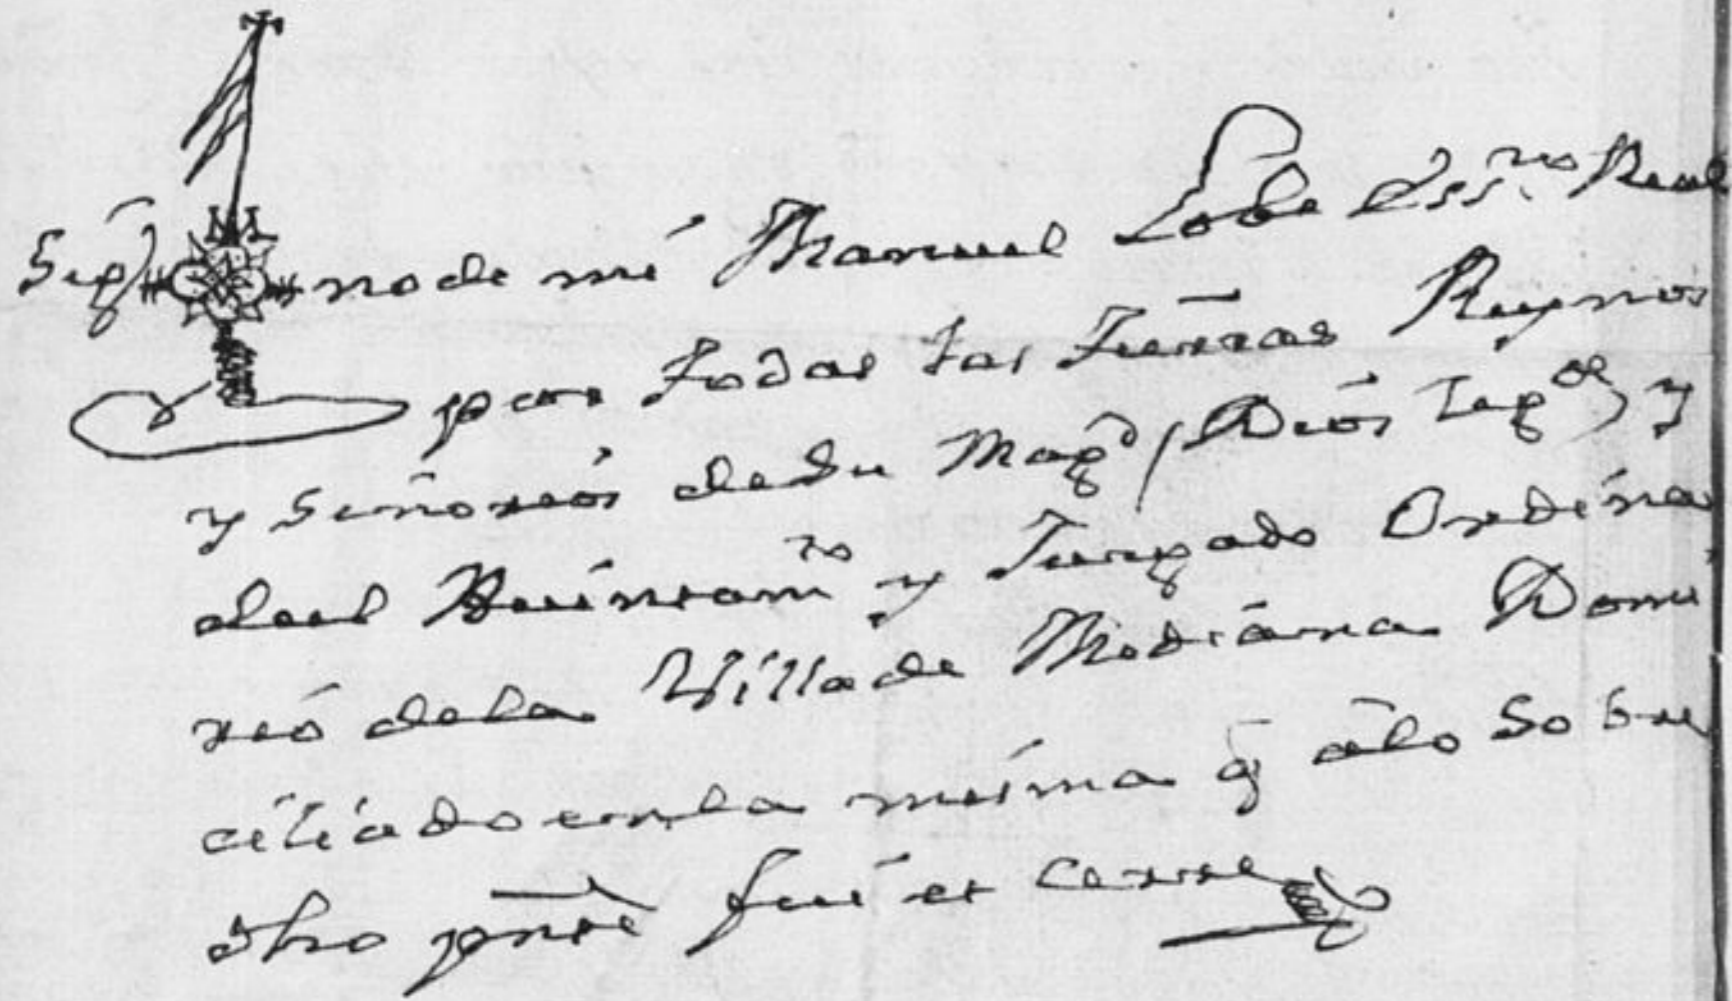 Sig no de mi Manuel Lobe Ess.no Real
por todas las Tierras Reynos
y Señorios de su Mag.d (Dios le g.de) y
del Auintam.to y Jurgado Ordina
rio de la Villa de Mediana Domi
ciliado en la misma q̄ a lo sobre
dho pnte fui et cerre